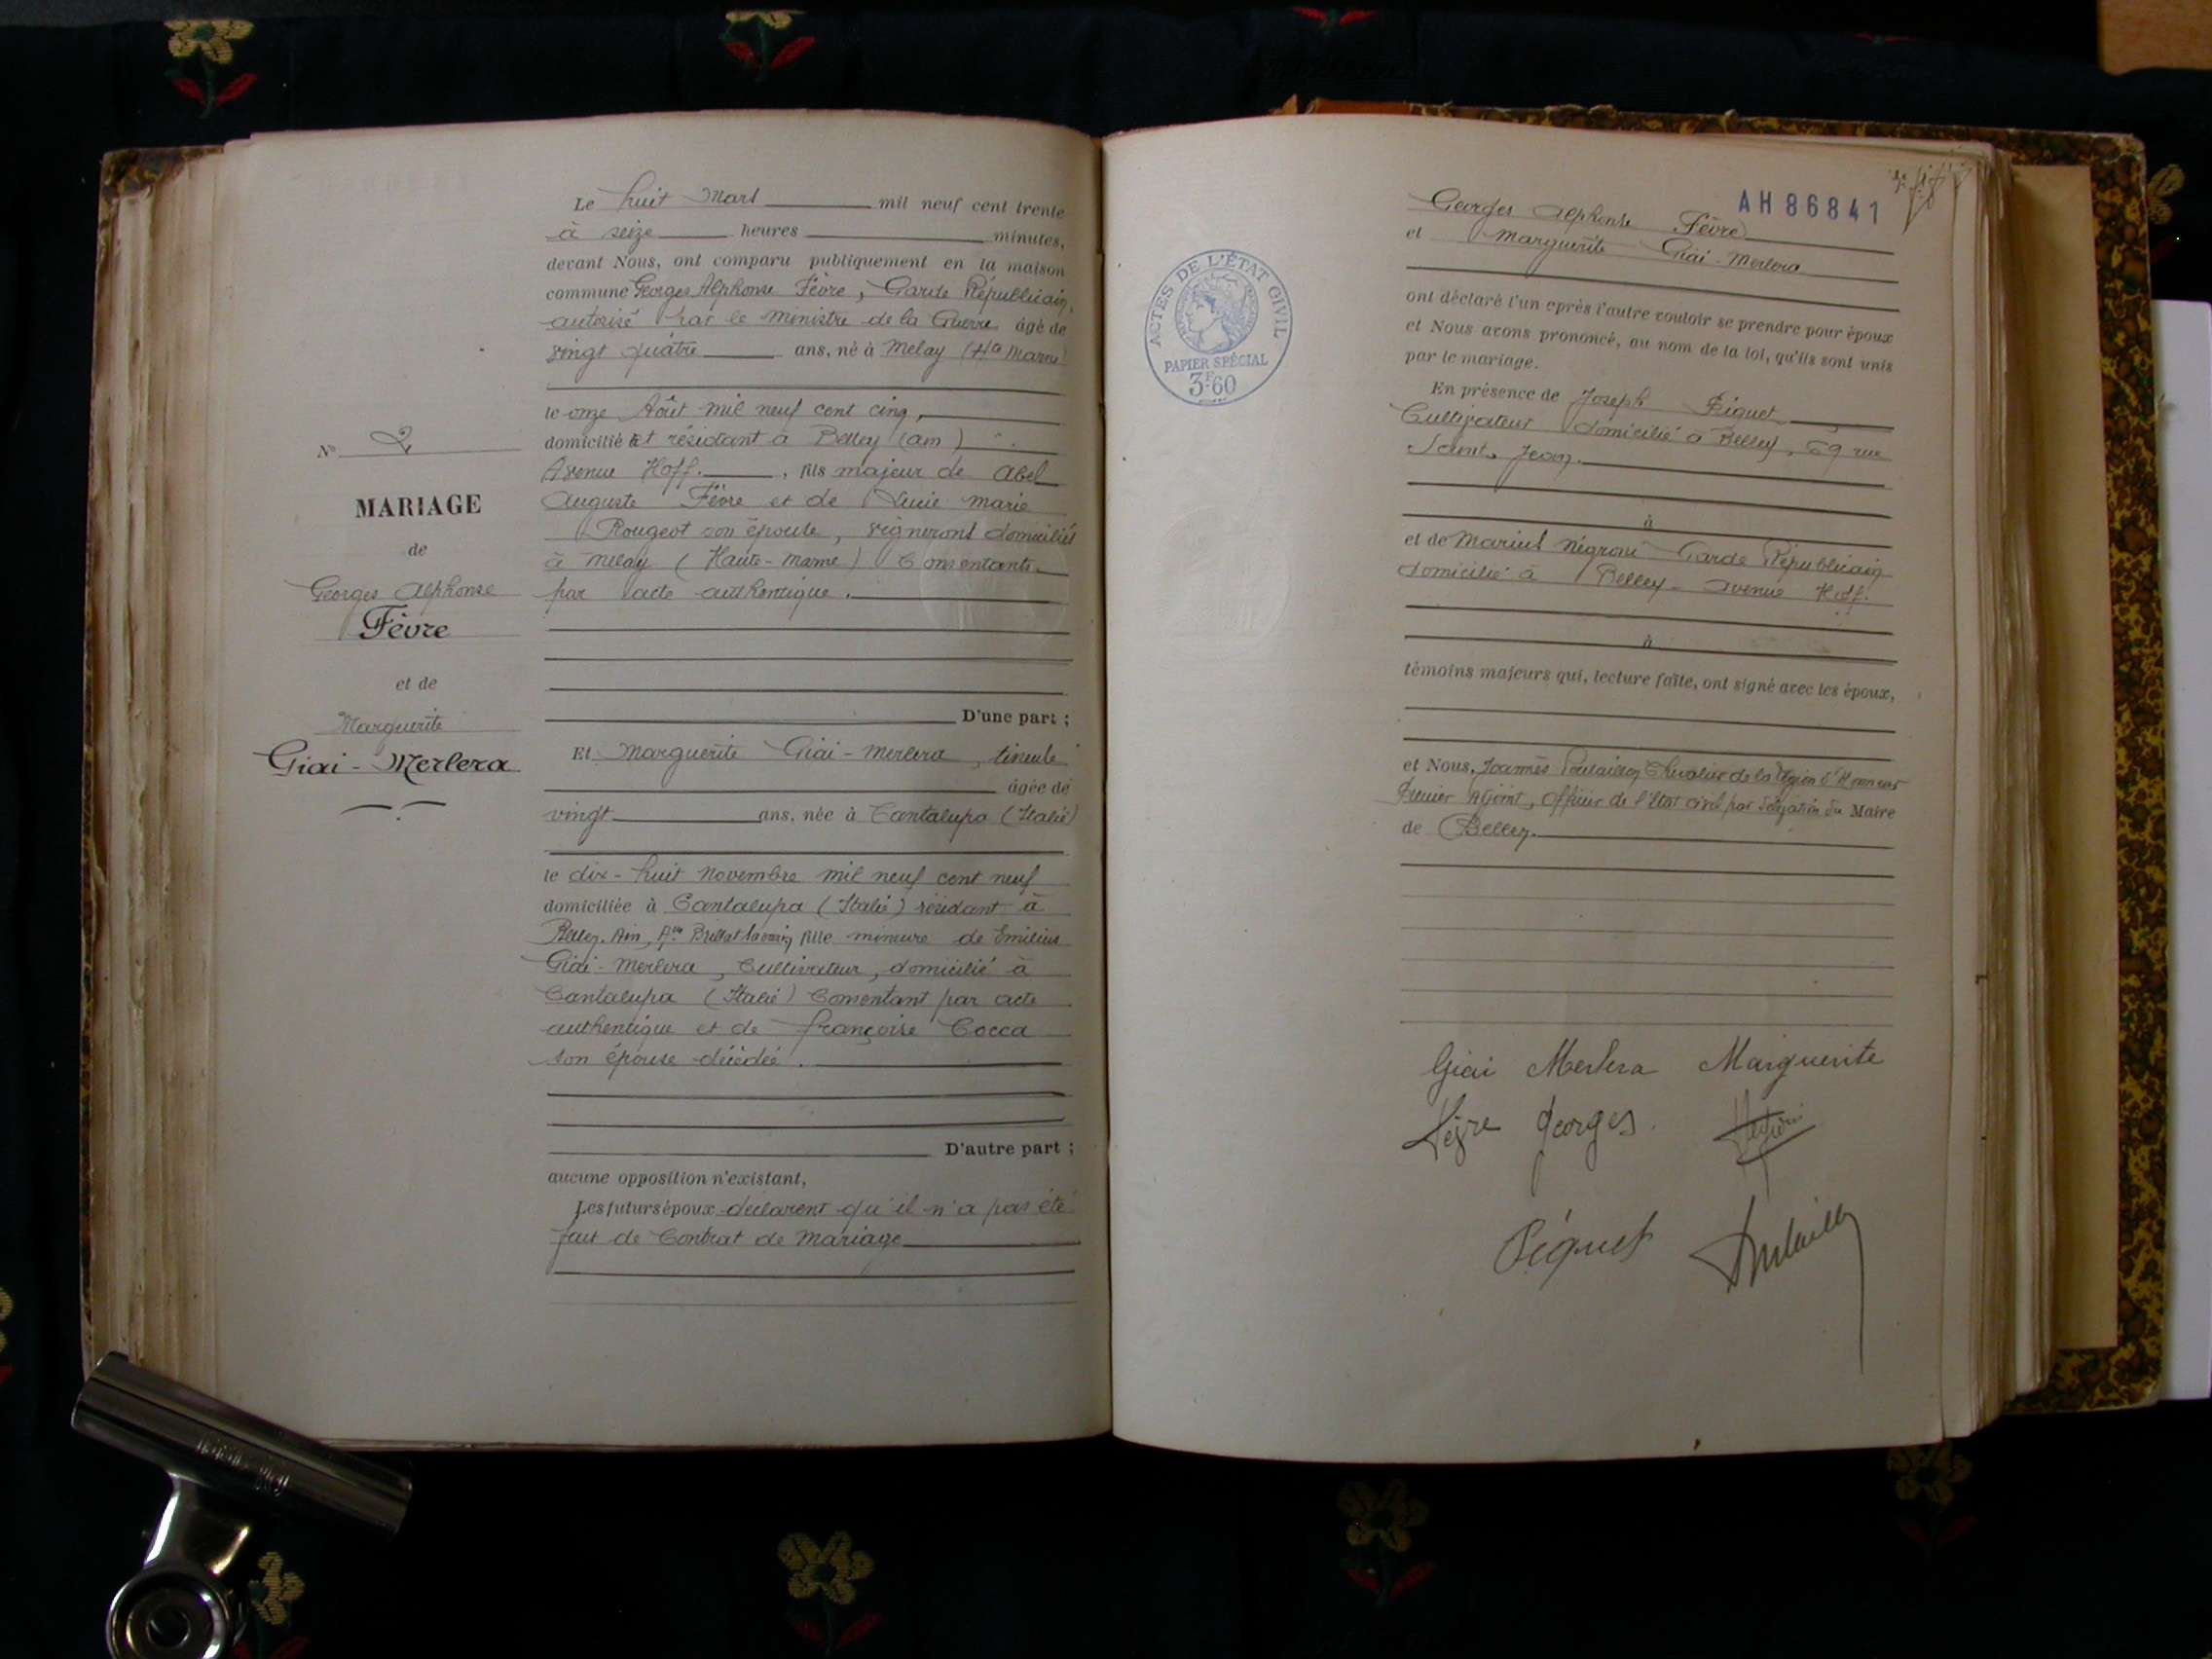 Le huit Mars mil neuf cent trente
à seize heures minutes,
devant Nous, ont comparu publiquement en la maison
commune Georges Alphonse Fèvre, Garde Républicain,
autorisé par le Ministre de la Guerre âgé de
vingt quatre ans, né à Melay (Hte Marne)
le onze Août mil neuf cent cinq,
domicilié et résidant à Belley (ain)
Avenue Hoff. , fils majeur de Abel
Auguste Fèvre et de Lucie Marie
Rougeot son épouse, vignerons domiciliés
à Melay (Haute-Marne) Consentants
par acte authentique.
D'une part ;
N° 2
MARIAGE
de
Georges Alphonse
Fèvre
et de
Marguerite
Giai-Merlera
Et Marguerite Giai-Merlera,
âgée de
vingt ans, née à Cantalupa (Italie)
le dix-huit Novembre mil neuf cent neuf
domiciliée à Cantalupa (Italie) résidant à
Belley. Ain, Brillat Savarin fille mineure de Emilius
Giai-Merlera, Cultivateur, domicilié à
Cantalupa (Italie) Consentant par acte
authentique et de Françoise Cocca
son épouse décédée.
D'autre part ;
aucune opposition n'existant,
Les futurs époux déclarent qu'il n'a pas été
fait de Contrat de Mariage
AH 86841
Georges Alphonse Fèvre
et Marguerite Giai-Merlera
ACTES DE L'ÉTAT CIVIL
PAPIER SPÉCIAL
3F60
ont déclaré l'un après l'autre vouloir se prendre pour époux
et Nous avons prononcé, au nom de la loi, qu'ils sont unis
par le mariage.
En présence de Joseph Piquet
Cultivateur domicilié à Belley, 69 rue
Saint Jean.
à
et de Marius Négroni Garde Républicain
domicilié à Belley - Avenue Hoff.
à
témoins majeurs qui, lecture faite, ont signé avec les époux,
et Nous, Joannès Poulailler Chevalier de la Légion d'Honneur
Premier Adjoint, Officier de l'Etat civil par délégation du Maire
de Belley.
Giai Merlera Marguerite
Fèvre Georges.
Piquet